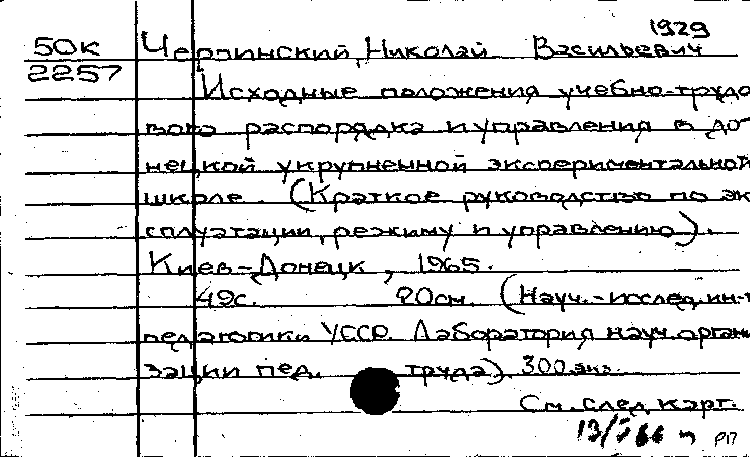 1929
50К Черпинский, Николай Васильевич
2257
Исходные положения учебно-трудо
вого распорядка и управления в До-
нецкой укрупненной экспериментальной
школе. (Краткое руководство по эк
сплуатации, режиму и управлению).
Киев-Донецк, 1965.
49с. 20см. (Науч.-исслед. ин-т
педагогики УССР. Лаборатория науч. органи
зации пед. труда). 300 экз.
См. след. карт.
13/V 66 п Р17